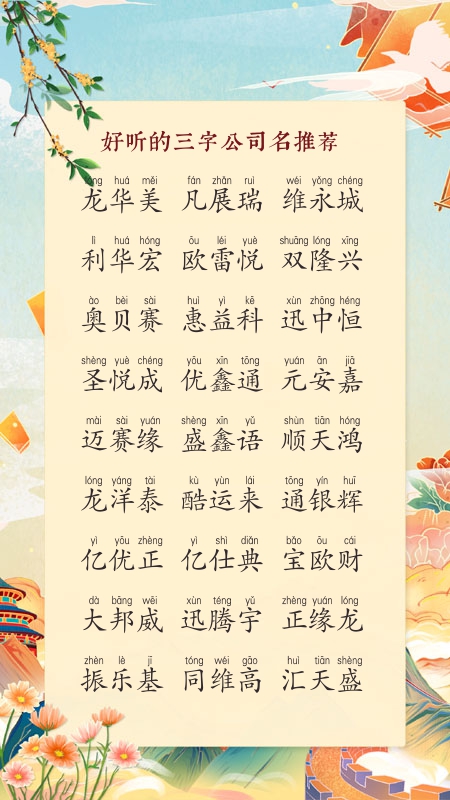 好听的三字公司名推荐
lóng huá měi fán zhǎn ruì wéi yǒng chéng
龙华美 凡展瑞 维永城
lì huá hóng ōu léi yuè shuāng lóng xīng
利华宏 欧雷悦 双隆兴
ào bèi sài huì yì kē xùn zhōng héng
奥贝赛 惠益科 迅中恒
shèng yuè chéng yōu xīn tōng yuán ān jiā
圣悦成 优鑫通 元安嘉
mài sài yuán shèng xīn yǔ shùn tiān hóng
迈赛缘 盛鑫语 顺天鸿
lóng yáng tài kù yùn lái tōng yín huī
龙洋泰 酷运来 通银辉
yì yōu zhèng yì shì diǎn bǎo ōu cái
亿优正 亿仕典 宝欧财
dà bāng wēi xùn téng yǔ zhèng yuán lóng
大邦威 迅腾宇 正缘龙
zhèn lè jī tóng wéi gāo huì tiān shèng
振乐基 同维高 汇天盛